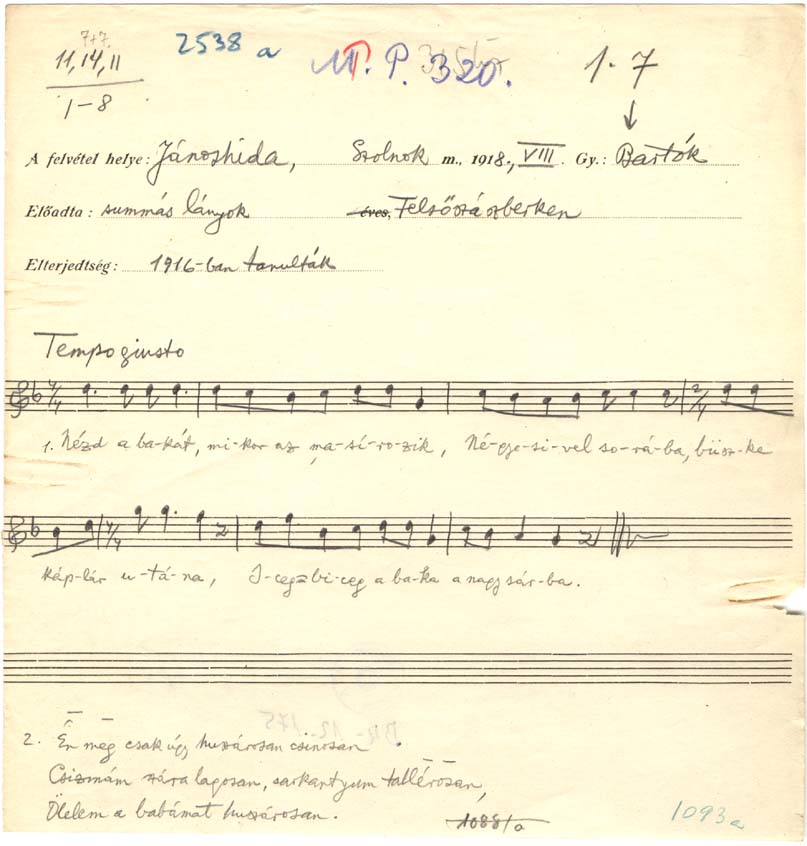 7+7.
11, 14, 11
1–8
2538 a
M. P. 320.
1. 7
↓
A felvétel helye: Jánoshida, Szolnok m., 1918., VIII. Gy.: Bartók
Előadta: summás lányok éves, Felsőszászberken
Elterjedtség: 1916-ban tanulták
Tempo giusto
1. Nézd a ba-kát, mi-kor az ma-sí-ro-zik, Né-gye-si-vel so-rá-ba, büsz-ke
káp-lár u-tá-na, I-ceg-bi-ceg a ba-ka a nagy sár-ba.
2. Én meg csak úgy huszárosan csinosan.
Csizmám szára lagosan, sarkantyum tallérosan,
Ölelem a babámat huszárosan.
1088/a
1093 a